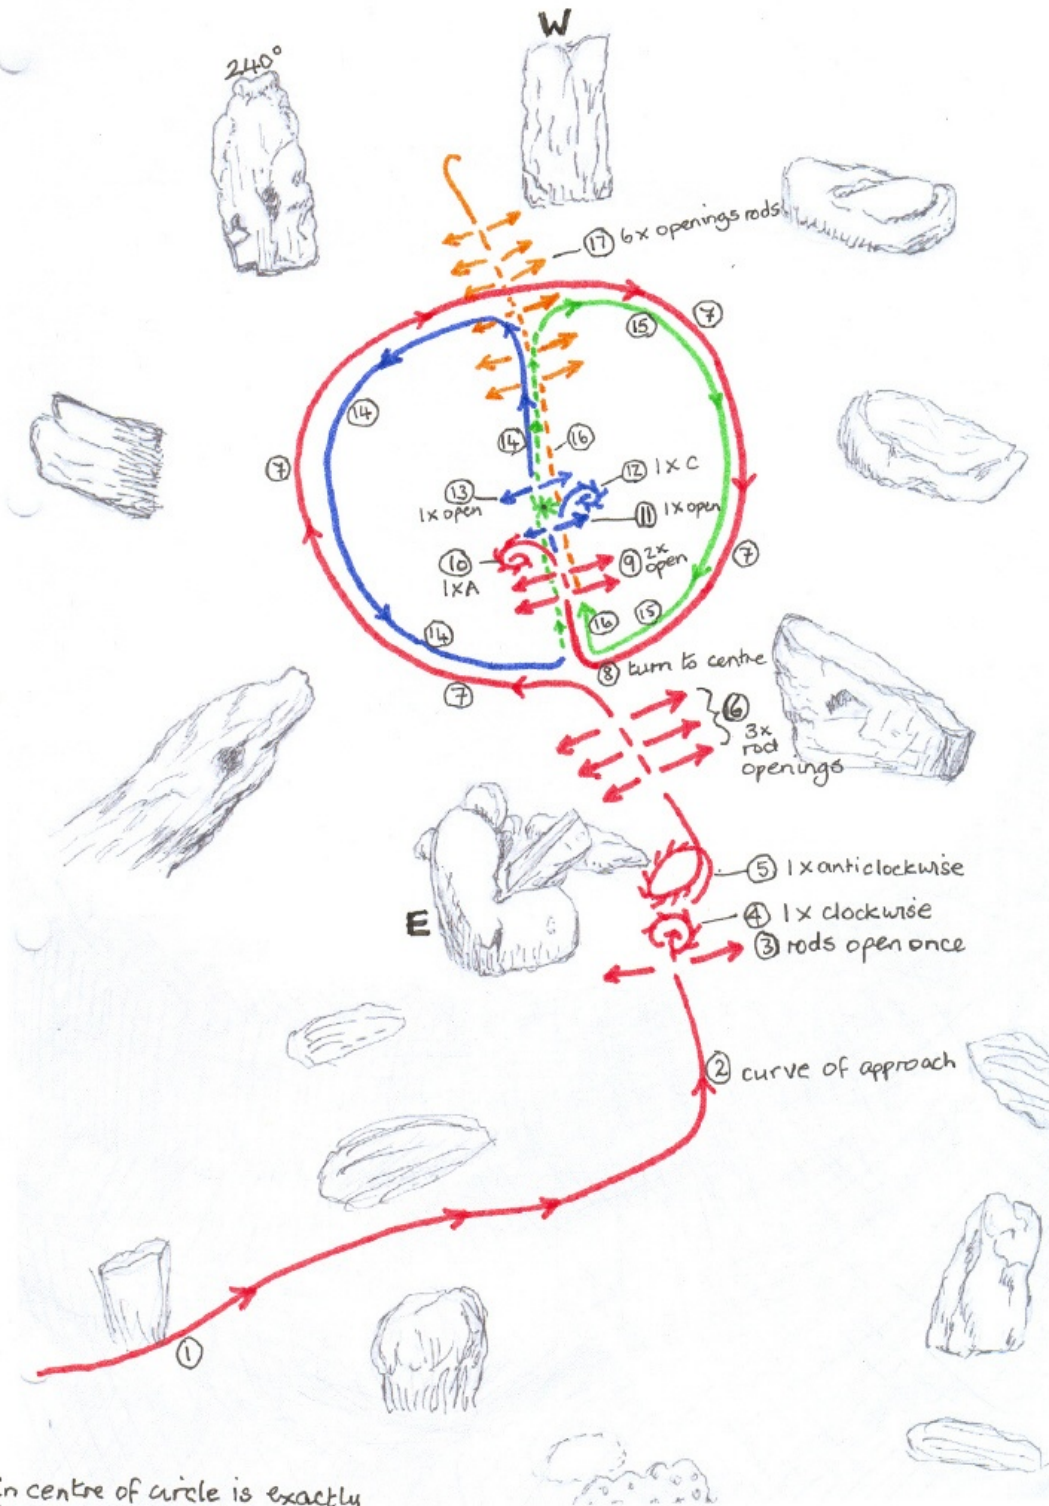 W
240°
17 6x openings rods
15
7
14
14
16
7
12 1xC
13
1x open
11 1x open
10
1xA
9 2x
open
7
14
16
15
8 turn to centre
7
16
3x
rod
openings
5 1x anticlockwise
4 1x clockwise
E
3 rods open once
2 curve of approach
1
in centre of circle is exactly